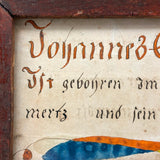 Johannes
Ist gebohren im
mertz und sein